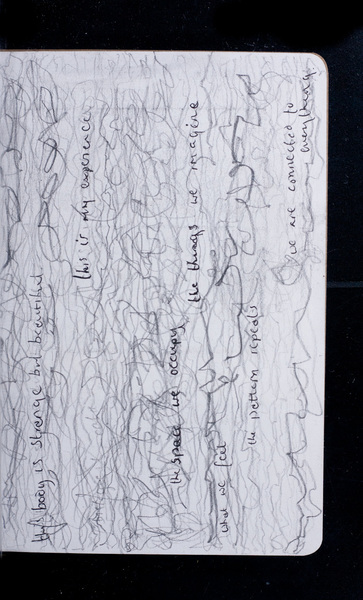 this body is strange but beautiful
this is my experience
the space we occupy
the things we imagine
what we feel
the pattern repeats
we are connected to
everything.